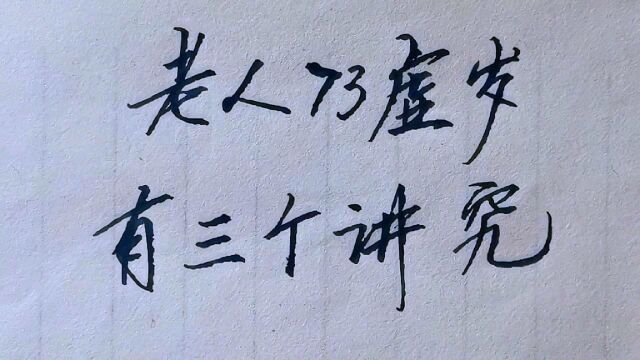 老人73虚岁
有三个讲究